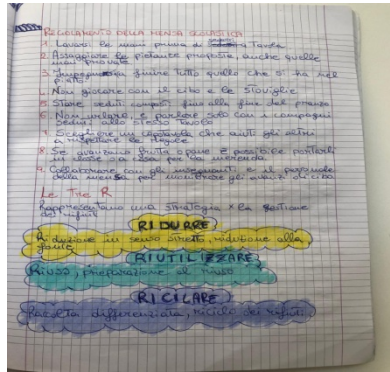 REGOLAMENTO DELLA MENSA SCOLASTICA
1. Lavarsi le mani prima di a Tavola
2. Assaggiare le pietanze proposte, anche quelle
mai provate
3. Impegnarsi a finire tutto quello che si ha nel
piatto
4. Non giocare con il cibo e le stoviglie
5. Stare seduti composti fino alla fine del pranzo
6. Non urlare, e parlare solo con i compagni
seduti allo stesso Tavolo
7. Scegliere un capotavola che aiuti gli altri
a rispettare le regole
8. Se avanzano frutta o pane è possibile portarli
in classe o a casa per la merenda
9. Collaborare con gli insegnanti e il personale
della mensa per monitorare gli avanzi di cibo
Le Tre R
Rappresentano una strategia x la gestione
dei rifiuti
RIDURRE
Riduzione in senso stretto, riduzione alla
fonte
RIUTILIZZARE
Riuso, preparazione al riuso
RICICLARE
Raccolta differenziata, riciclo dei rifiuti